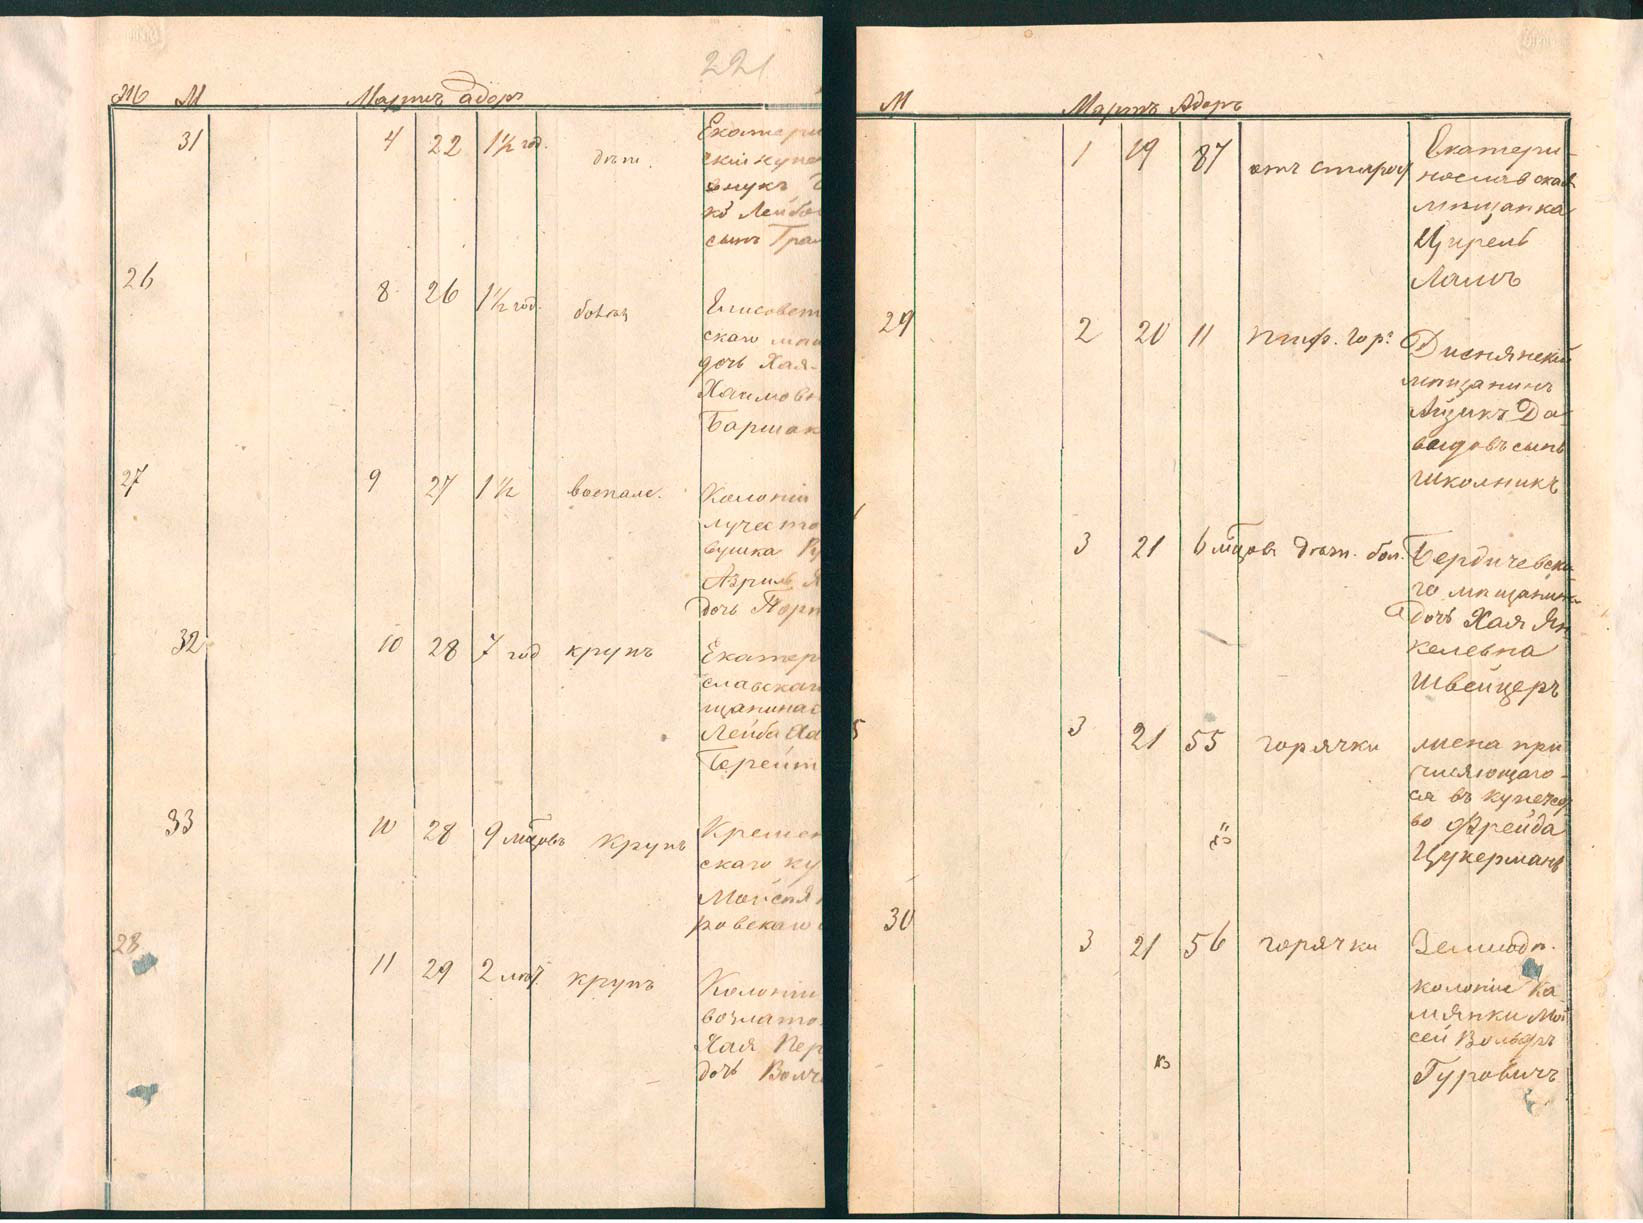 221
Ж М Мартъ Адоръ
31 4 22 1½ год. дѣт.
Екатери
скій купе
внукъ
ко Лейбо
сынъ Гра
26 8 26 1½ год.
Елисовет
скаго мѣщ
дочь Хая-
Хаимовн
Баршак
27 9 27 1½ воспале.
Колоніи
вушка
Азриль
дочь Порт
32 10 28 7 год крупъ
Екатер
славскаг
щанина
Лейба Ха
Берейт
33 10 28 9 мѣцовъ крупъ
Кремен
скаго ку
Мойсея
ровскаго
28 11 29 2 мѣц. крупъ
Колоніи
Хая Пер
дочь Волч
М Мартъ Адоръ
1 19 87 отъ старос
Екатери-
нославская
мѣщанка
Цирель
Ламъ
29 2 20 11 тиф. гор.
Диснянскій
мѣщанинъ
Айзикъ Да-
выдовъ сынъ
Школникъ
3 21 6 мѣцовъ дѣтс. бол.
Бердичевска
го мѣщанина
дочь Хая Ян
келевна
Швейцеръ
3 21 55 горячки
жена при
числяющаго-
ся въ купечес
во Фрейда
Цукерманъ
30
3 21 56 горячки
Землодѣ.
колоніи Ка
мянки Мой
сей Вольфъ
Гуровичъ